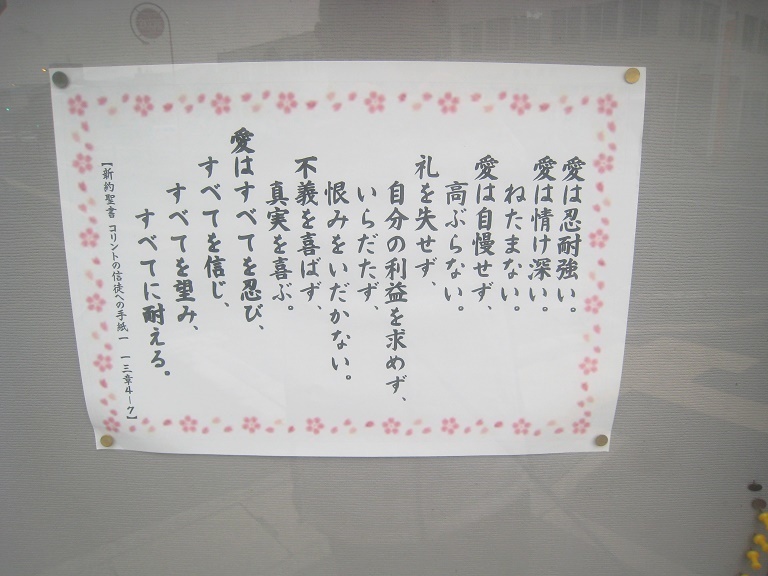 愛は忍耐強い。
愛は情け深い。
ねたまない。
愛は自慢せず、
高ぶらない。
礼を失せず、
自分の利益を求めず、
いらだたず、
恨みをいだかない。
不義を喜ばず、
真実を喜ぶ。
愛はすべてを忍び、
すべてを信じ、
すべてを望み、
すべてに耐える。
【新約聖書 コリントの信徒への手紙一 一三章4－7】